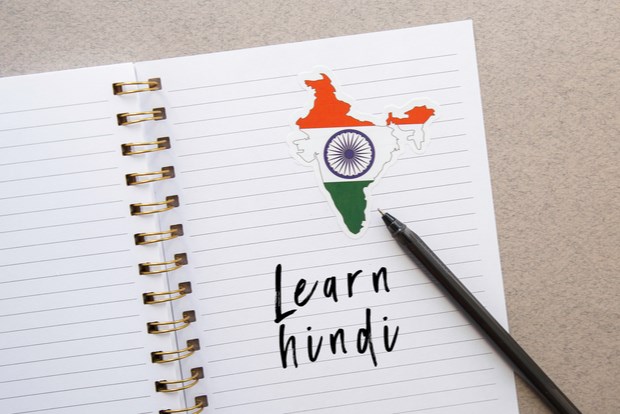 Learn
hindi